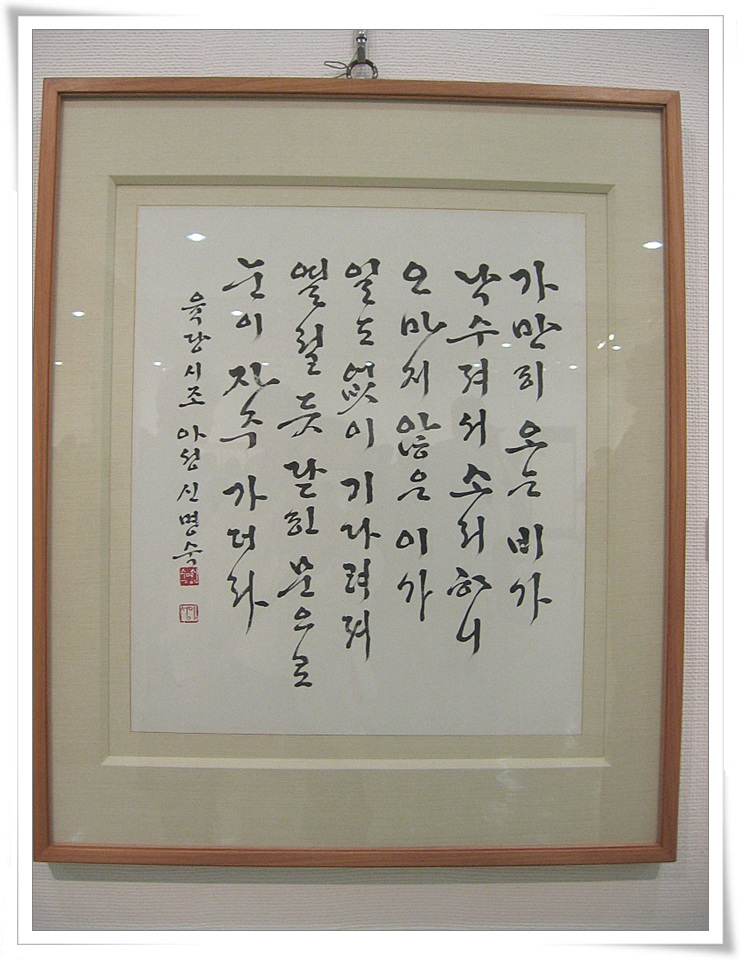 가만히 오는 비가
낙수져서 소리하니
오마지 않은 이가
일도 없이 기다려져
열릴 듯 닫힌 문으로
눈이 자주 가더라
육당시조 아정 신명숙